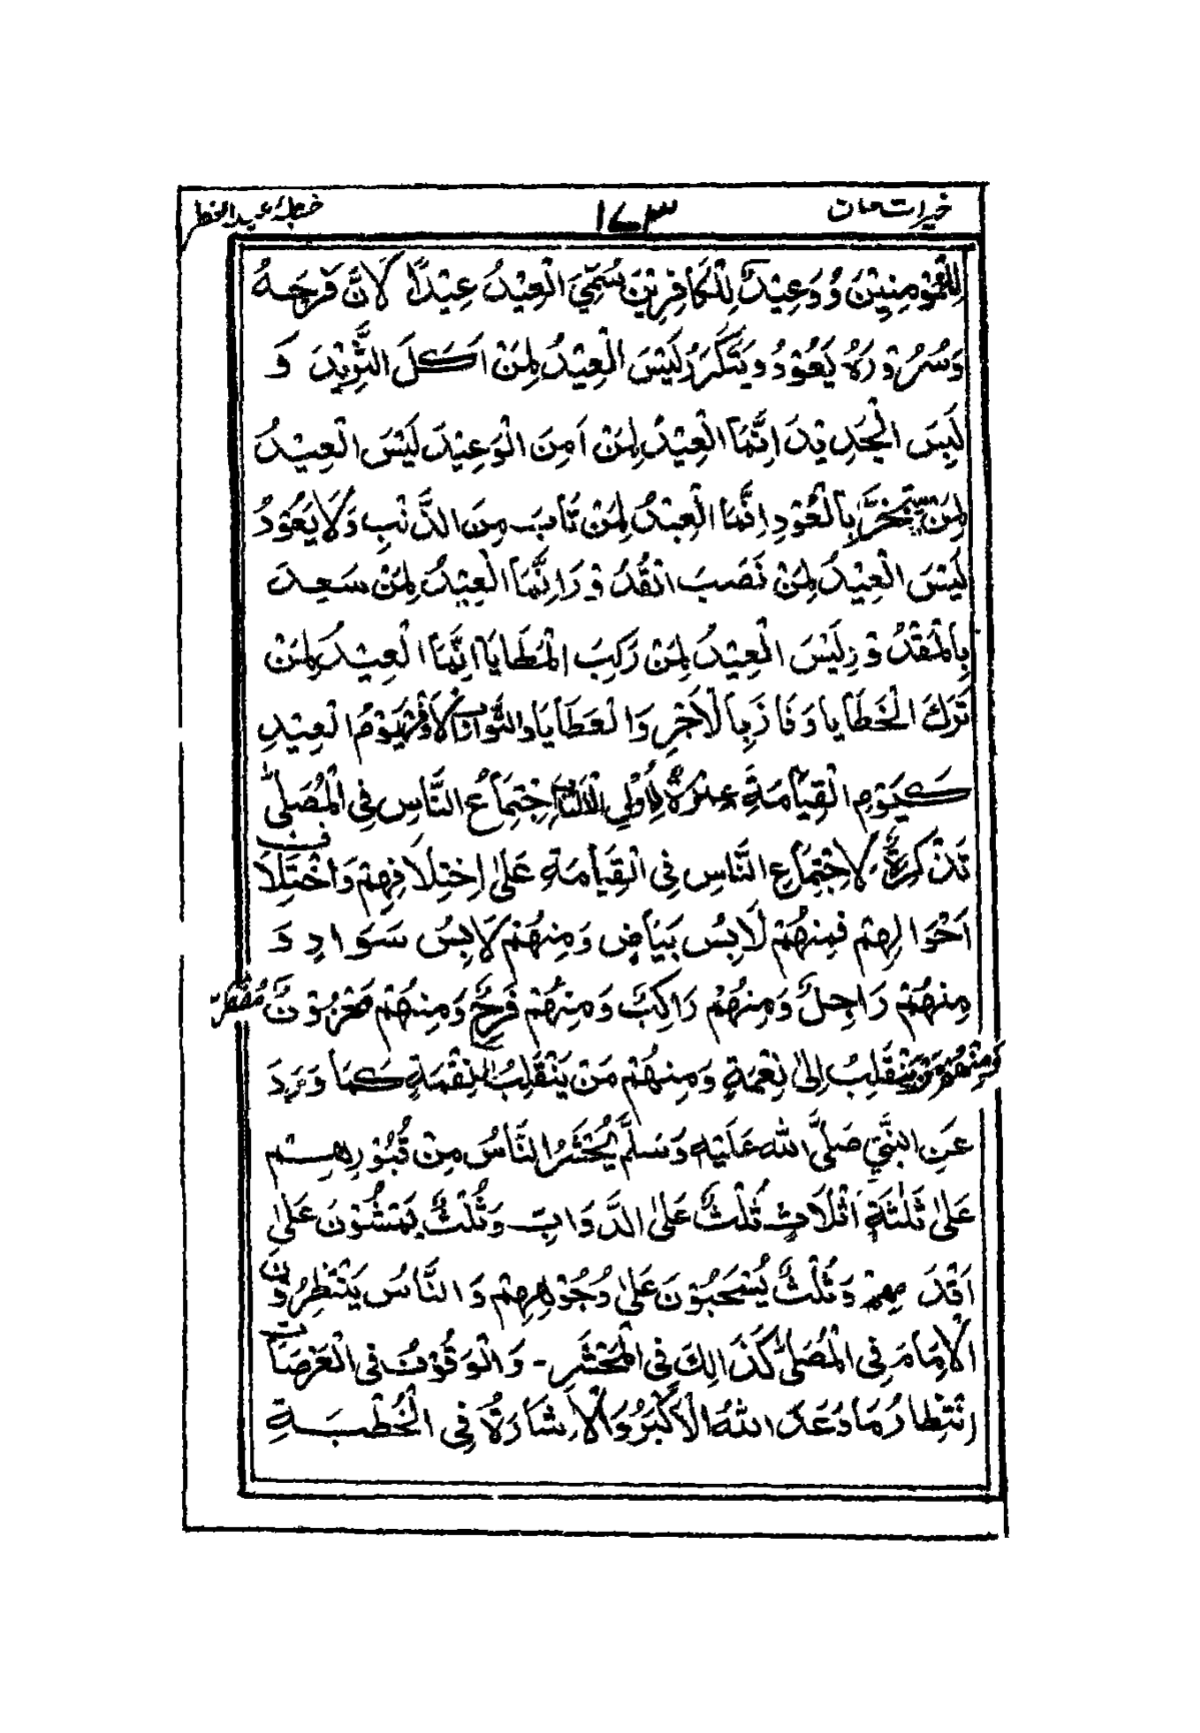 خیرات حسان ۱۷۳ خطبۂ عیدالفطر
لِلْمُؤْمِنِيْنَ وَوَعِيْدٌ لِلْكَافِرِيْنَ سُمِّيَ الْعِيْدُ عِيْدًا لِاَنَّ فَرْحَهٗ
وَسُرُوْرَهٗ يَعُوْدُ وَيَتَكَرَّرُ لَيْسَ الْعِيْدُ لِمَنْ اَكَلَ الثَّرِيْدَ وَ
لَبِسَ الْجَدِيْدَ اِنَّمَا الْعِيْدُ لِمَنْ اَمِنَ الْوَعِيْدَ لَيْسَ الْعِيْدُ
لِمَنْ يَتَبَخَّرُ بِالْعُوْدِ اِنَّمَا الْعِيْدُ لِمَنْ تَابَ مِنَ الذَّنْبِ وَلَا يَعُوْدُ
لَيْسَ الْعِيْدُ لِمَنْ نَصَبَ الْقُدُوْرَ اِنَّمَا الْعِيْدُ لِمَنْ سَعِدَ
بِالْمَقْدُوْرِ لَيْسَ الْعِيْدُ لِمَنْ رَكِبَ الْمَطَايَا اِنَّمَا الْعِيْدُ لِمَنْ
تَرَكَ الْخَطَايَا وَفَازَ بِالْاَجْرِ وَالْعَطَايَا وَالثَّوَابِ الْاَوْفَرِ يَوْمُ الْعِيْدِ
كَيَوْمِ الْقِيَامَةِ عِبْرَةٌ لِاُولِي اجْتِمَاعُ النَّاسِ فِي الْمُصَلّٰى
تَذْكِرَةٌ لِاجْتِمَاعِ النَّاسِ فِي الْقِيَامَةِ عَلٰى اِخْتِلَافِهِمْ وَاخْتِلَافِ
اَحْوَالِهِمْ فَمِنْهُمْ لَابِسُ بَيَاضٍ وَمِنْهُمْ لَابِسُ سَوَادٍ وَ
مِنْهُمْ رَاجِلٌ وَمِنْهُمْ رَاكِبٌ وَمِنْهُمْ فَرِحٌ وَمِنْهُمْ مَحْزُوْنٌ
وَمِنْهُمْ مَنْ يَنْقَلِبُ اِلٰى نِعْمَةٍ وَمِنْهُمْ مَنْ يَنْقَلِبُ لِنِقْمَةٍ كَمَا وَرَدَ
عَنِ النَّبِيِّ صَلَّى اللّٰهُ عَلَيْهِ وَسَلَّمَ يُحْشَرُ النَّاسُ مِنْ قُبُوْرِهِمْ
عَلٰى ثَلٰثَةِ اَثْلَاثٍ ثُلْثٌ عَلَى الدَّوَابِّ وَثُلْثٌ يَمْشُوْنَ عَلٰى
اَقْدَامِهِمْ وَثُلْثٌ يُسْحَبُوْنَ عَلٰى وُجُوْهِهِمْ وَالنَّاسُ يَنْتَظِرُوْنَ
الْاِمَامَ فِي الْمُصَلّٰى كَذَالِكَ فِي الْمَحْشَرِ - وَالْوُقُوْفُ فِي الْعَرَصَاتِ
اِنْتِظَارُ مَا وَعَدَ اللّٰهُ الْاَكْبَرُ وَالْاِشَارَةُ فِي الْخُطْبَةِ